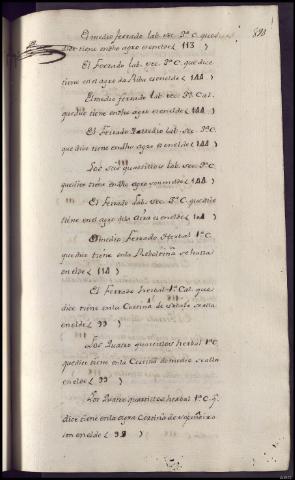 El medio ferrado lab. sec. 3ª C. que
dice tiene en dho agro es en el de ( 113 )
El Ferrado lab. sec. 3ª C. que dice
tiene en el agro da Riba es en el de ( 144 )
El medio ferrado lab. sec. 3ª Cal.
que dice tiene en dho agro es en el de ( 144 )
El Ferrado lab. sec. 3ª C.
que dice tiene en dho agro es en el de ( 144 )
Los seis quartillos lab. sec. 3ª C.
que dice tiene en dho agro son en el de ( 144 )
El Ferrado lab. sec. 3ª C. que dice
tiene en el agro dela es en el de ( 144 )
El medio Ferrado Herbal 1ª C.
que dice tiene en la se halla
en el de ( 114 )
El Ferrado herbal 1ª Cal. que
dice tiene en la Cortiña de se alla
en el de ( 99 )
Los Quatro quartillos herbal 1ª C.
que dice tiene en la Cortiña de medio se alla
en el de ( 99 )
Los Quatro quartillos herbal 1ª C. q.
dice tiene en la agra Cortiña de
son en el de ( 99 )